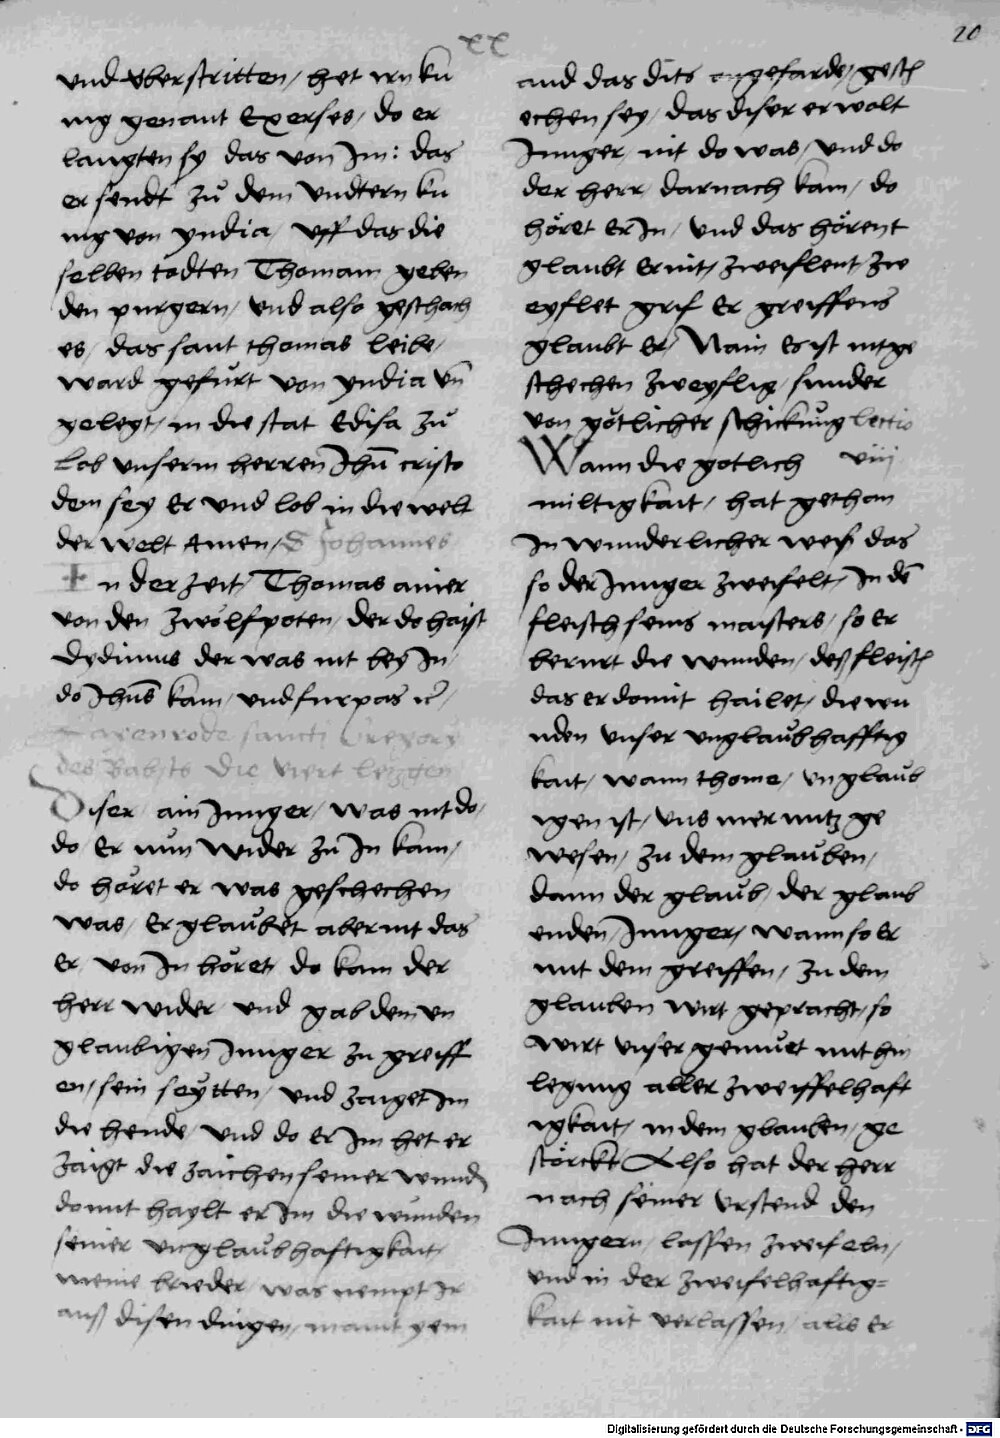 xx
20
vnd vberstritten / het irn kü
nig genant Exerses / do er
langten sy das von Im: das
er sendt zů dem vndtern kü
nig von yndia / vff das die
selben todten Thomam geben
den purgern / vnd also geschach
es / das sant thomas leibe /
ward gefůrt von yndia vn̄
gelegt / in die stat Edisa zů
Lob vnserm herren Jhū cristo
dem sey Er vnd lob in die welt
der welt Amen / S Johannes
In der zeit / Thomas ainer
von den zwölfpoten / der do haist
Dydimus der was nit bey In /
do Jhūs kam / vnd furpas ꝛc /
sancti Gregory
des Babsts die viert letzgen
Diser / ain Junger / was nit do /
do Er nun wider zů In kam /
do höret er was geschechen
was / Er glaubet aber nit das
er / von In höret / do kam der
herr wider vnd gab dem vn
glaubigen Junger zu greiff
en / sein seytten / vnd zaiget Im
die hende / vnd do Er Im het er
zaigt die zaichen seiner wund
domit haylt er Im die wunden
seiner vnglaubhaftigkait /
meine brieder was nempt Ir
auß disen dingen / maint yem
and das dits ongefarde / gesch
echen sey / das diser erwolt
Junger / nit do was / vnd do
der herr / darnach kam / do
höret Er In / vnd das hörent
glaubt Er nit / zweiflent / zw
eyflet grif Er greiffens
glaubt Er / Nain Es ist nit ge
schechen zweyflig / sunder
von götlicher schickung lectio
Wann die gotlich viii
miltigkait / hat gethan
In wunderlicher weiß das
so der Junger zweifelt / In dē
fleisch seins maisters / so Er
berurt die wunden / deß fleisch
das er domit hailet / die wu
nden vnser vnglaubhafftig
kait / wann thome / vnglaub
igen ist / vns mer nutz ge
wesen / zu dem glauben /
dann der glaub / der glaub
enden / Junger / wann so Er
mit dem greiffen / zu dem
glauben wirt gepracht / so
wirt vnser gemuet mit hin
legung aller zweiffelhaft
igkait / in dem glauben / ge
störckt Also hat der herr
nach seiner vrstend den
Jungern / lassen zweifeln /
vnd in der zweifelhaftig=
kait nit verlassen / alls Er
Digitalisierung gefördert durch die Deutsche Forschungsgemeinschaft - DFG